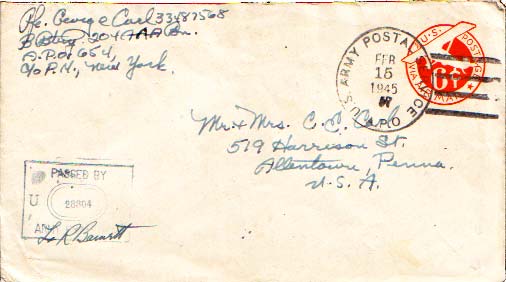 Pfc. George Carl 33487568
B Btry. 204 AAA Bn.
A.P.O. 654,
c/o P.M., New York.
U.S. ARMY POSTAL SERVICE
FEB
15
1945
A.P.O.
U.S. POSTAGE
6¢
VIA AIR MAIL
Mr. & Mrs. C. C. Carl
519 Harrison St.
Allentown, Penna.
U. S. A.
PASSED BY
U
28804
AR
L R Barnett